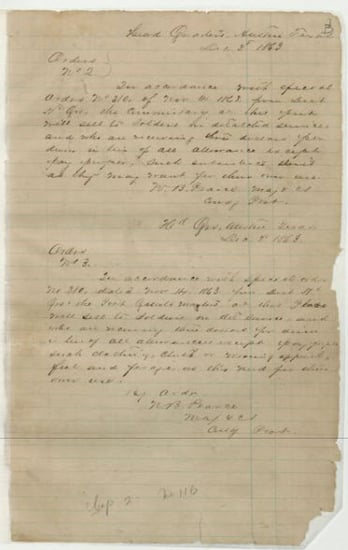 Head Quarters, Austin Texas
Dec 2d 1863
Orders
No 2
In accordance with special
Orders No 310 of Nov 14 1863 from
Hd Qrs, the Commissary at this Post
will sell to Soldiers on detached service
and who are receiving three dollars per
diem in lieu of all allowance except
pay proper, such subsistence stores
as they may want for their own use
W. B. Pearce Maj & C S
Comdg Post.
Hd Qrs, Austin Texas
Dec 2d 1863.
Orders
No 3.
In accordance with Special Ord
No 310, dated Nov 14, 1863 from
Qrs. the Post Quarter Master at this Place
will sell to Soldiers on det service and
who are receiving three dollars per diem
in lieu of all allowances except pay proper
such clothing, cloth or
and forage as they need for their
own use.
By Order
W. B. Pearce
Maj & C S
Comdg Post
No 116